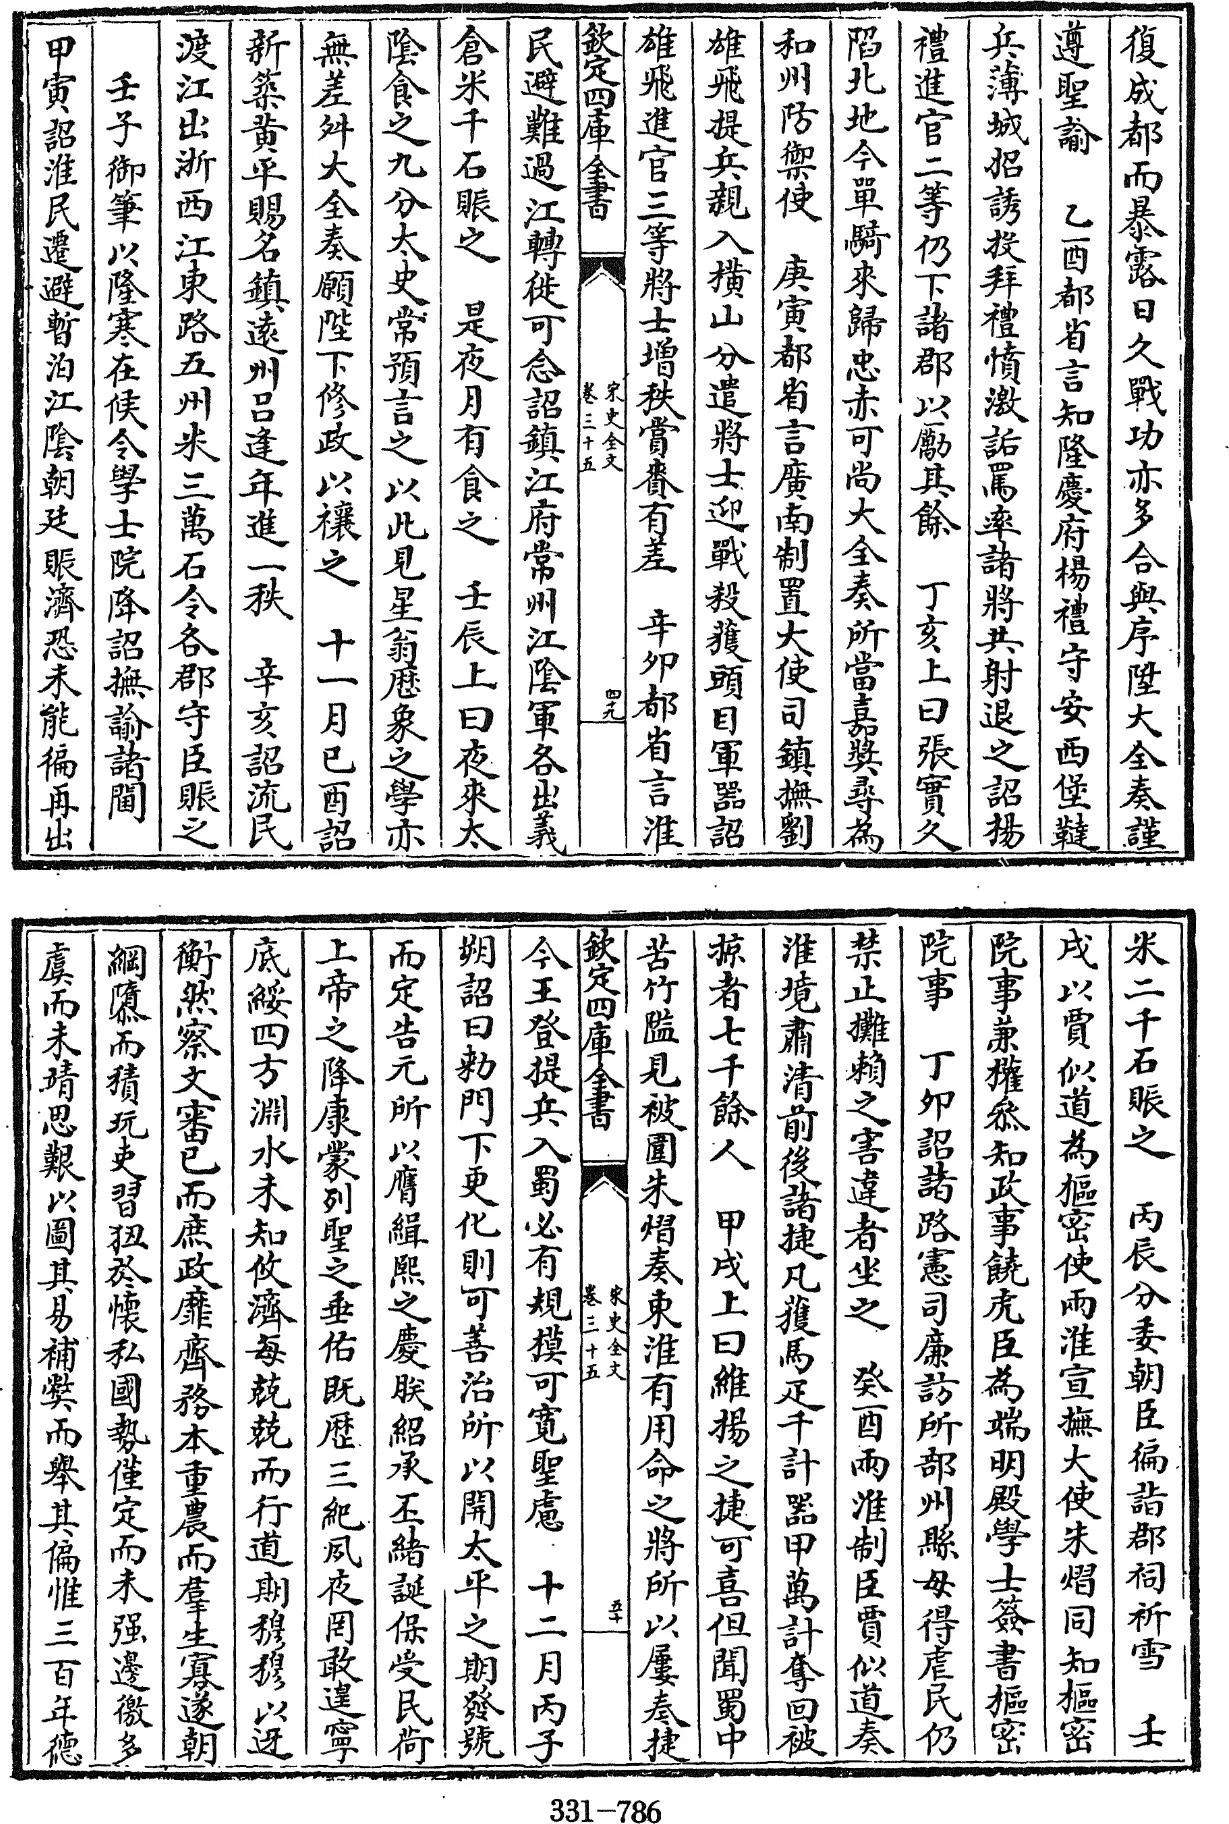 復成都而暴露日久戰功亦多合與序陞大全奏謹
遵聖諭　乙酉都省言知隆慶府楊禮守安西堡韃
兵薄城招誘投拜禮憤激詬罵率諸將共射退之詔楊
禮進官二等仍下諸郡以勵其餘　丁亥上曰張實久
陷北地今單騎來歸忠赤可尚大全奏所當嘉獎尋為
和州防禦使　庚寅都省言廣南制置大使司鎮撫劉
雄飛提兵親入橫山分遣將士迎戰殺獲頭目軍器詔
雄飛進官三等將士增秩賞賚有差　辛卯都省言淮
欽定四庫全書
宋史全文
卷三十五
四十九
民避難過江轉徙可念詔鎮江府常州江陰軍各出義
倉米千石賑之　是夜月有食之　壬辰上曰夜來太
陰食之九分太史常預言之以此見星翁歷象之學亦
無差舛大全奏願陛下修政以禳之　十一月己酉詔
新築黃平賜名鎮遠州呂逢年進一秩　辛亥詔流民
渡江出浙西江東路五州米三萬石令各郡守臣賑之
壬子御筆以隆寒在候令學士院降詔撫諭諸閫
甲寅詔淮民遷避暫泊江陰朝廷賑濟恐未能徧再出
米二千石賑之　丙辰分委朝臣徧詣郡祠祈雪　壬
戌以賈似道為樞密使兩淮宣撫大使朱熠同知樞密
院事兼權叅知政事饒虎臣為端明殿學士簽書樞密
院事　丁卯詔諸路憲司廉訪所部州縣毋得虐民仍
禁止攤賴之害違者坐之　癸酉兩淮制臣賈似道奏
淮境肅清前後諸捷凡獲馬疋千計器甲萬計奪回被
掠者七千餘人　甲戌上曰維揚之捷可喜但聞蜀中
苦竹隘見被圍朱熠奏東淮有用命之將所以屢奏捷
欽定四庫全書
宋史全文
卷三十五
五十
今王登提兵入蜀必有規模可寬聖慮　十二月丙子
朔詔曰勑門下更化則可善治所以開太平之期發號
而定告元所以膺緝熙之慶朕紹承丕緒誕保受民荷
上帝之降康蒙列聖之垂佑既歷三紀夙夜罔敢遑寧
底綏四方淵水未知攸濟每兢兢而行道期穆穆以迓
衡然察文審己而庶政靡齊務本重農而羣生寡遂朝
綱隳而積玩吏習狃於懷私國勢僅定而未强邊徼多
虞而未靖思艱以圖其易補弊而舉其偏惟三百年德
331-786